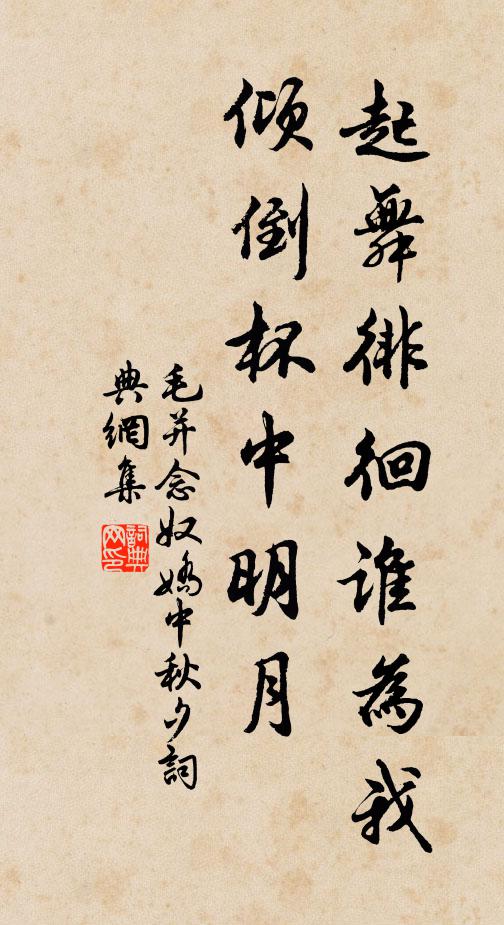 起舞徘徊誰為我
傾倒杯中明月
毛并念奴嬌中秋夕詞
典網集
詞典網印